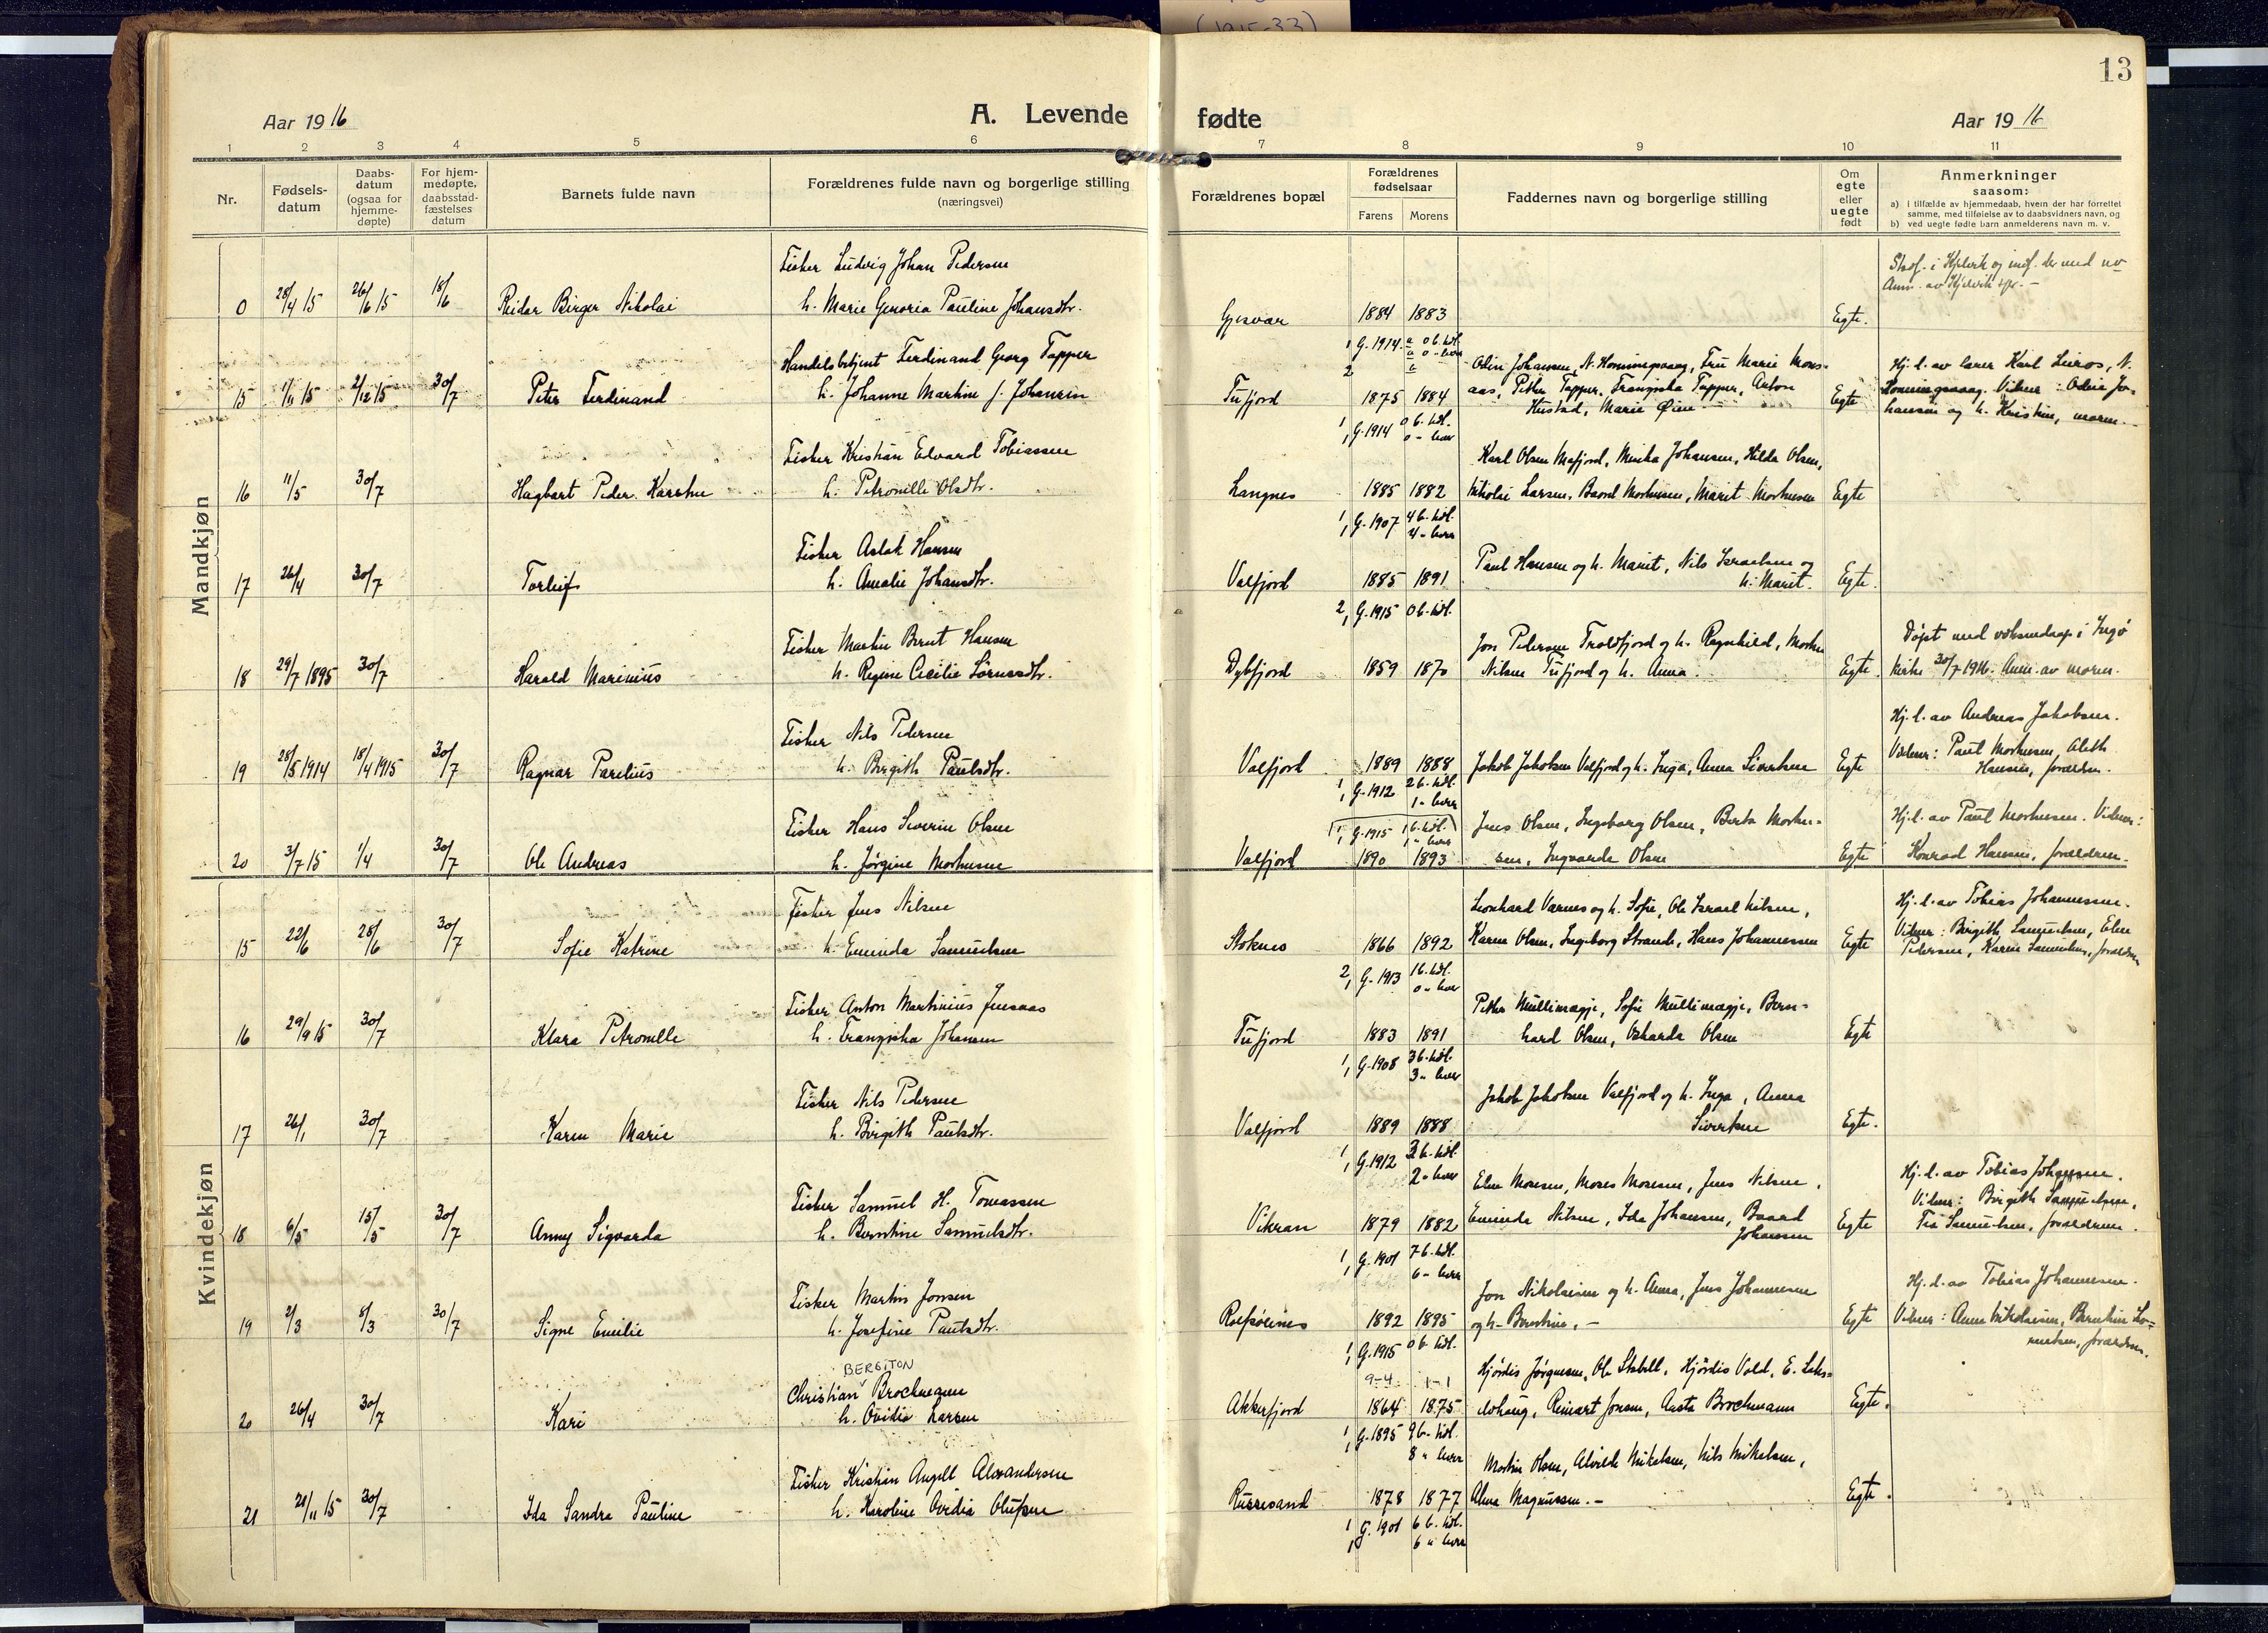 (1915-33)
13
Aar 1916
A. Levende
fødte
Aar 1916
1 2 3 4 5 6 7 8 9 10 11
Nr.
Fødsels-
datum
Daabs-
datum
(ogsaa for
hjemme-
døpte)
For hjem-
medøpte,
daabsstad-
fæstelses
datum
Barnets fulde navn
Forældrenes fulde navn og borgerlige stilling
(næringsvei)
Forældrenes bopæl
Forældrenes
fødselsaar
Farens Morens
Faddernes navn og borgerlige stilling
Om
egte
eller
uegte
født
Anmerkninger
saasom:
a) i tilfælde av hjemmedaab, hvem der har forrettet
samme, med tilføielse av to daabsvidners navn, og
b) ved uegte fødte barn anmelderens navn m. v.
Mandkjøn
Fisker Ludvig Johan Pedersen
0 28/4 15 26/6 15 18/6 Reidar Birger Nikolai h. Marie Genoria Pauline Johansdtr.
Gjesvær 1884 1883 Egte.
G. 1914
Handelsbetjent Ferdinand Georg Tapper
15 1/11 15 2/12 15 30/7 Peter Ferdinand h. Johanne Martine f. Johansen
Tufjord 1875 1884 Egte
Olin Johansen, N. Honningsvaag, Fru Marie Mons-
aas, Petter Tapper, Fransiska Tapper, Anton
Hustad, Marie Øien
Hj. d. av lærer Karl Leiros, N.
Honningsvaag. Vidner: Odin Jo-
hansen og h. Kristine, moren.
1/1 G. 1914 0 b. tdl.
0 " lever
Fisker Kristian Edvard Tobiassen
16 11/5 30/7 Hagbart Peder Karsten h. Petronelle Olsdtr.
Karl Olsen Mafjord, Minka Johansen, Hilda Olsen,
Langnes 1885 1882 Nikolai Larsen, Baard Morthensen, Marit Morthensen Egte
1/1 G. 1907 4 b. tdl.
4 " lever
Fisker Aslak Hansen
17 26/4 30/7 Torleif h. Amalie Johansdtr.
Paul Hansen og h. Marit, Nils Israelsen og
Valfjord 1885 1891 h. Marit. Egte.
2/1 G. 1915 0 b. tdl.
Fisker Martin Bernt Hansen
18 29/7 1895 30/7 Harald Marinius h. Regine Cecilie Sørensdtr.
Jon Pedersen Troldfjord og h. Ragnhild, Morten
Dybfjord 1859 1870 Nilsen Tufjord og h. Anna. Egte.
Døpt med voksendaap i Ingø
kirke 30/7 1916. Anm. av moren.
Fisker Nils Pedersen
19 28/5 1914 18/4 1915 30/7 Ragnar Parelius h. Bergith Paulsdtr.
Valfjord 1889 1888 Jakob Jakobsen Valfjord og h. Inga, Anna Sivertsen Egte
Hj. d. av Andreas Jakobsen.
Vidner: Paul Morthensen, Aleth
Hansen, forældren.
1/1 G. 1912 2 b. tdl.
1 " lever
Fisker Hans Severin Olsen
20 3/7 15 1/4 30/7 Ole Andreas h. Jørgine Morthensen
1/1 G. 1915 1 b. tdl.
1 " lever
Jens Olsen, Ingeborg Olsen, Berta Morthen-
Valfjord 1890 1893 sen, Ingvarda Olsen Egte
Hj. d. av Paul Morthensen. Vidner:
Konrad Hansen, forældren.
Kvindekjøn
Fisker Jens Nilsen
15 22/6 28/6 30/7 Sofie Katrine h. Eminda Samuelsen
Leonhard Varnes og h. Sofie, Ole Israel Nilsen,
Stoknes 1866 1892 Karen Olsen, Ingeborg Strand, Hans Johannessen Egte
Hj. d. av Tobias Johannessen.
Vidner: Birgith Samuelsen, Elen
Pedersen, Karen Samuelsen, forældren
2/1 G. 1913 1 b. tdl.
0 " lever
Fisker Anton Martinius Jensaas
16 29/9 15 30/7 Klara Petronelle h. Fransiska Johansen
Petter Mullimægi, Sofie Mullimægi, Bern-
Tufjord 1883 1891 hard Olsen, Oskarda Olsen Egte
1/1 G. 1908 3 b. tdl.
3 " lever
Fisker Nils Pedersen
17 26/1 30/7 Karen Marie h. Birgith Paulsdtr.
Jakob Jakobsen Valfjord og h. Inga, Anna
Valfjord 1889 1888 Sivertsen Egte.
1/1 G. 1912 3 b. tdl.
2 " lever
Fisker Samuel H. Tomassen
18 6/5 15/5 30/7 Anny Sigvarda h. Berntine Samuelsdtr.
Elen Monsen, Moses Monsen, Jens Nilsen,
Vikran 1879 1882 Eminda Nilsen, Ida Johansen, Baard
Johansen Egte
Hj. d. av Tobias Johansen.
Vidner: Birgith Samuelsen,
Fia Samuelsen, forældren.
1/1 G. 1901 7 b. tdl.
6 " lever
Fisker Martin Jonsen
19 2/3 8/3 30/7 Signe Emilie h. Josefine Paulsdtr.
Jon Nikolaisen og h. Anna, Jens Johannesen
Rolfsøines 1892 1895 og h. Berntine. – Egte
Hj. d. av Tobias Johannesen.
Vidner: Anna Nikolaisen, Berntine Lo-
rentsen, forældren.
1/1 G. 1915 0 b. tdl.
BERGITON
Christian Brochmann
20 26/4 30/7 Kari h. Ovidia Larsen
9-4 1-1
Hjørdis Jørgensen, Ole Stabell, Hjørdis Vold, E. Laks-
Akkarfjord 1864 1875 elvhaug, Reinart Jonsen, Aasta Brochmann Egte.
1/1 G. 1895 9 b. tdl.
8 " lever
Fisker Kristian Angell Alexandersen
21 21/11 15 30/7 Ida Sandra Pauline h. Karoline Ovidia Olufsen
Martin Olsen, Alvilde Mikalsen, Nils Mikalsen,
Russesand 1878 1877 Alma Magnussen. – Egte.
1/1 G. 1901 6 b. tdl.
6 " lever